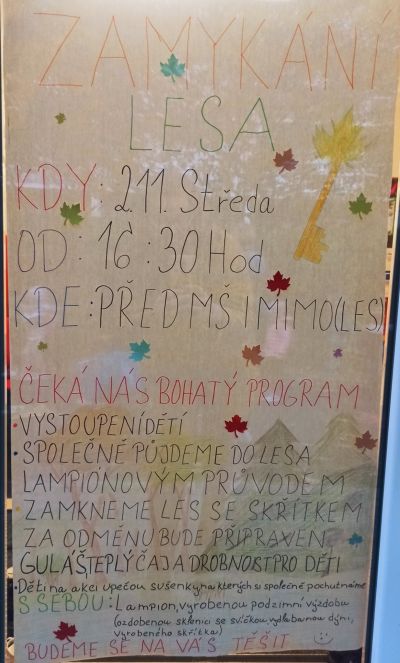 ZAMYKÁNÍ
LESA
KDY: 2.11. Středa
OD: 16:30 Hod
KDE: PŘED MŠ I MIMO(LES)
ČEKÁ NÁS BOHATÝ PROGRAM
• VYSTOUPENÍ DĚTÍ
• SPOLEČNĚ PŮJDEME DO LESA
LAMPIÓNOVÝM PRŮVODEM
ZAMKNEME LES SE SKŘÍTKEM
ZA ODMĚNU BUDE PŘIPRAVEN
GULÁŠ TEPLÝ ČAJ A DROBNOST PRO DĚTI
• Děti na akci upečou sušenky, na kterých si společně pochutnáme
S SEBOU: Lampion, vyrobenou podzimní výzdobu
(ozdobenou sklenici se svíčkou, vydlabanou dýni,
vyrobeného skřítka)
BUDEME SE NA VÁS TĚŠIT